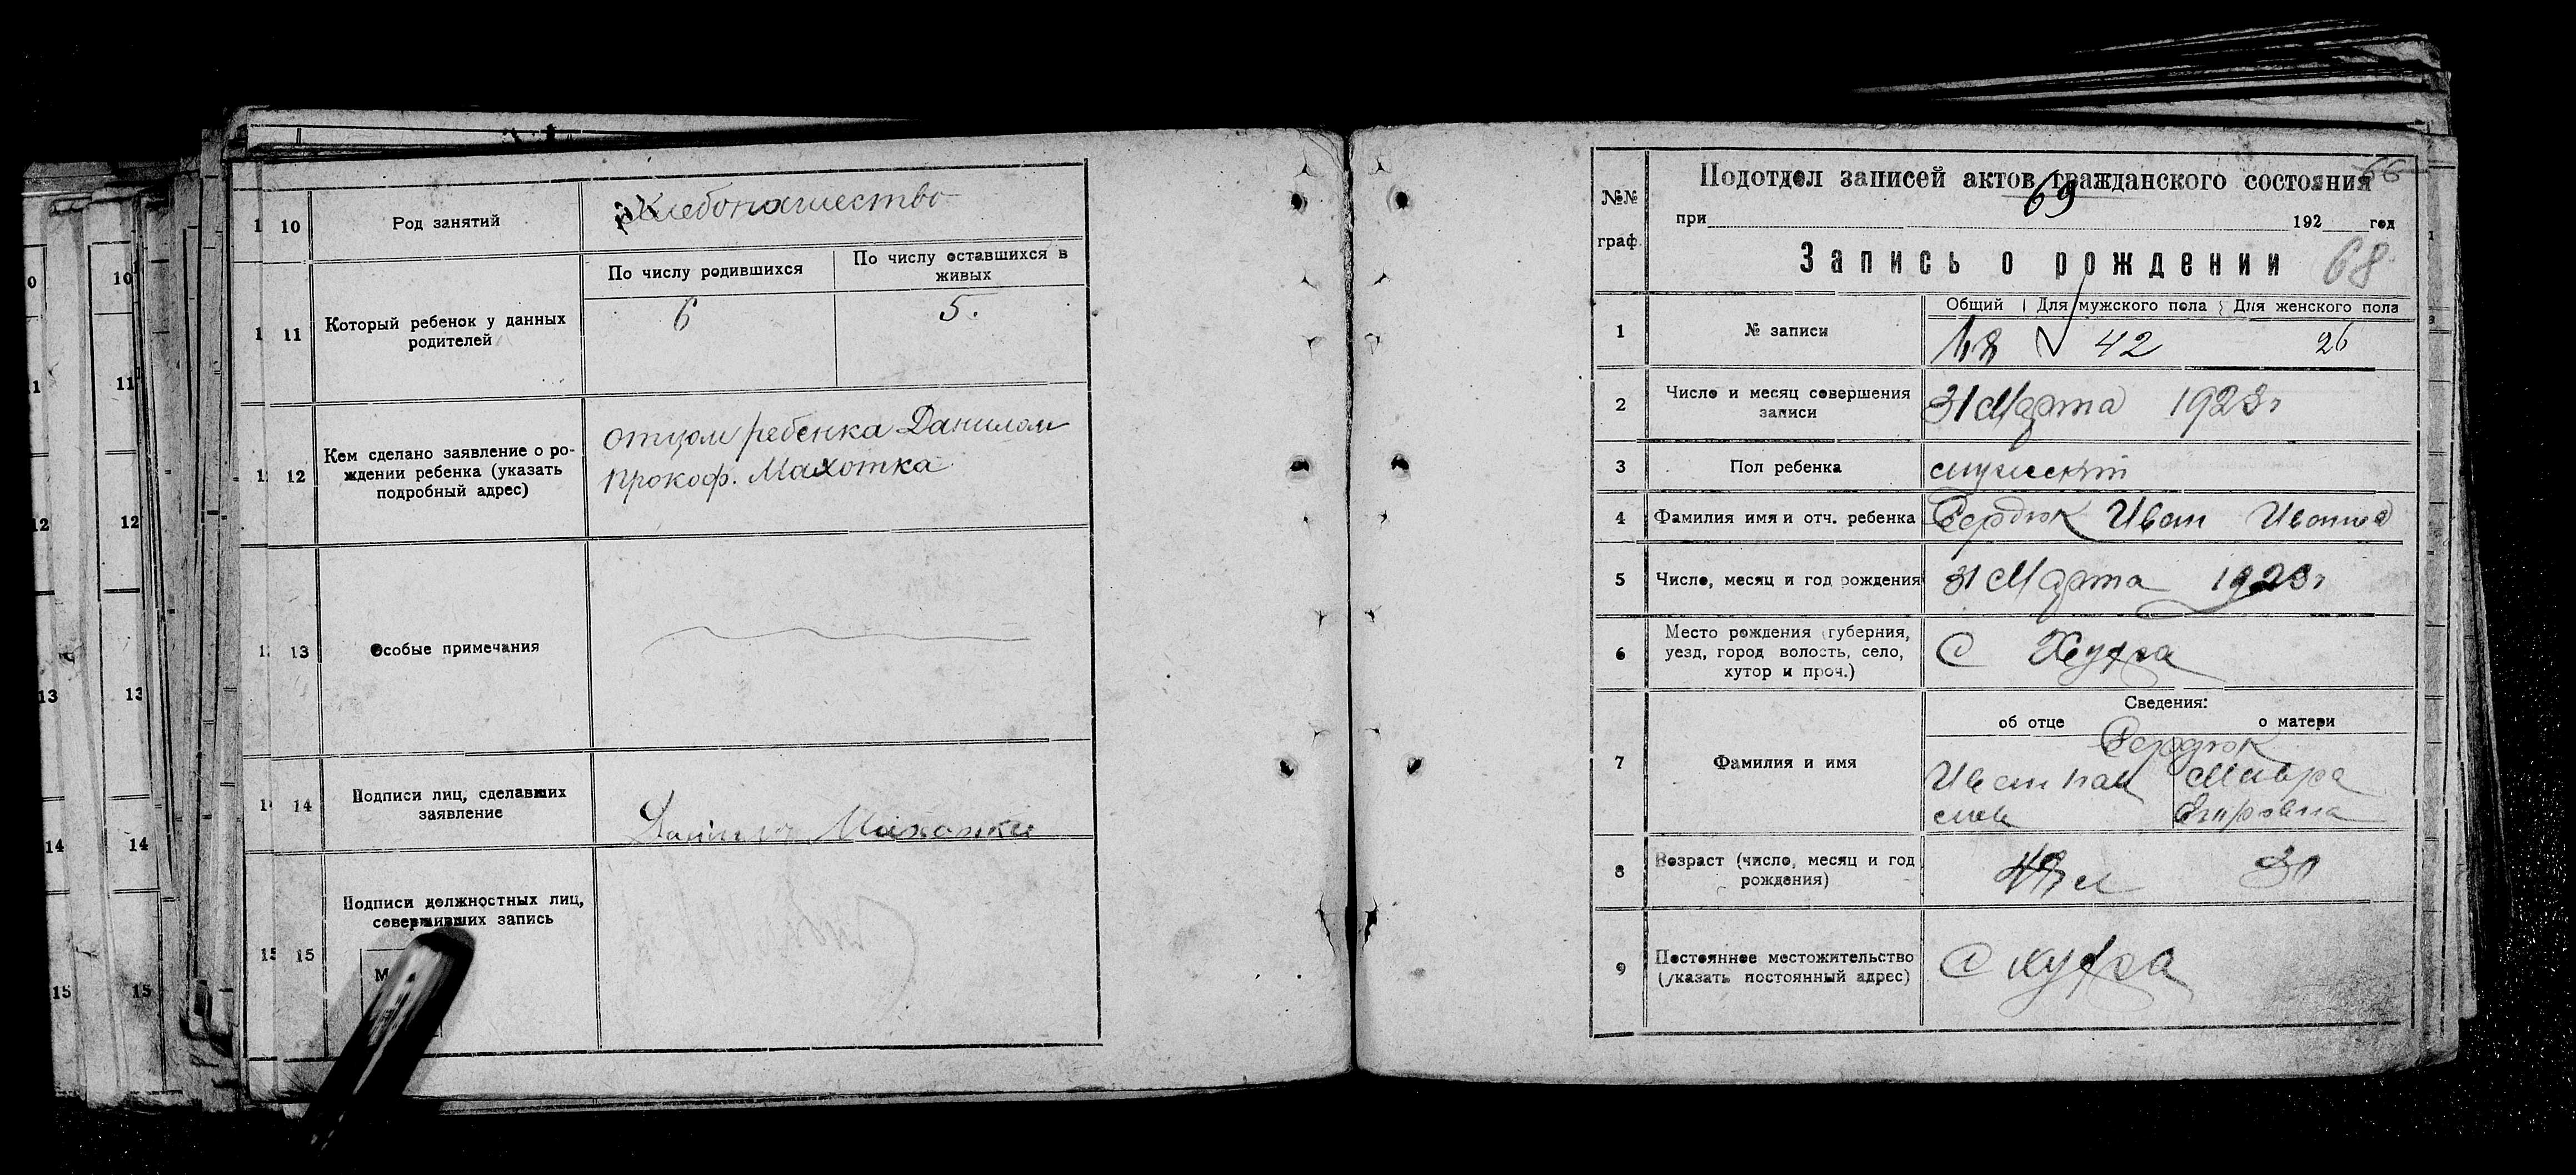 10 Род занятий Хлебопашество
По числу родившихся По числу оставшихся в живых
11 Который ребенок у данных родителей 6 5.
12 Кем сделано заявление о ро-
ждении ребенка (указать
подробный адрес)
отцом ребенка Данилом
Прокоф. Махотка
13 Особые примечания
14 Подписи лиц, сделавших
заявление
Махотка
15 Подписи должностных лиц,
совершивших запись
№№
граф
66
Подотдел записей актов гражданского состояния
69
при 192 год
Запись о рождении 68
Общий Для мужского пола Для женского пола
1 № записи 42 26
2 Число и месяц совершения
записи
31 Марта 1923 г
3 Пол ребенка мужской
4 Фамилия имя и отч. ребенка Сердюк Иван
5 Число, месяц и год рождения 31 Марта 1923 г
6 Место рождения (губерния,
уезд, город волость, село,
хутор и проч.)
С
Сведения:
об отце о матери
7 Фамилия и имя
Сердюк
Мавра
Егоровна
8 Возраст (число, месяц и год
рождения)
30
9 Постоянное местожительство
(указать постоянный адрес)
С
10
11
12
13
14
15